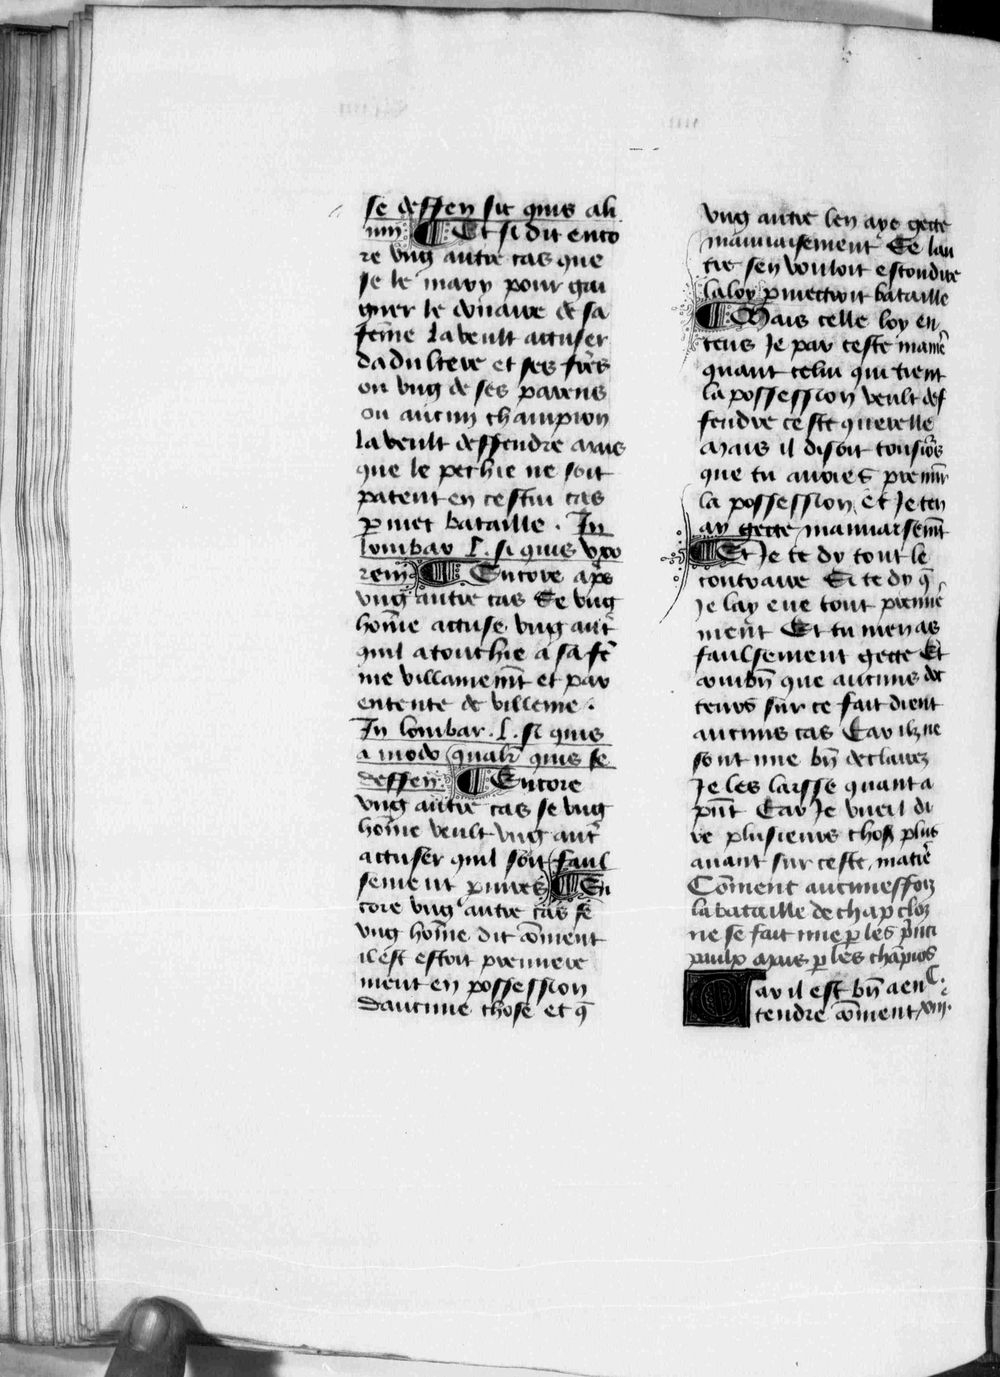 se deffen sit quis ali
num ¶ Et si dit enco
re vng autre cas que
se le mary pour gai
gner le douaire de sa
fēme la veult accuser
dadultere et ses frēs
ou vng de ses parens
ou aucun champion
la veult deffendre mais
que le pechie ne soit
patent en cestui cas
ꝑmet bataille . In
lombar l. si quis vxo
rem ¶ Encore apēs
vng autre cas Se vng
hōme accuse vng autr̄
quil a touchie a sa fē
me villainemēt et par
entente de villenie .
In lombar . l. si quis
a modo qualr̄ quis se
deffen. ¶ Encore
vng autre cas se vng
hōme veult vng autr̄
accuser quil soit faul
sement pariures ¶ En
core vng autre cas se
vng hōme dit cōment
il est estoit premiere
ment en possession
daucune chose et q̄
vng autre len aye gette
mauuaisement Se lau
tre sen vouloit escondire
la loy ꝑmectroit bataille
¶ Mais celle loy en
tens Je par ceste manīe
quant celui qui tient
la possession veult def
fendre ceste querelle
Mais il disoit tousiōs
que tu auoies premīr
la possession Et Je ten
ay gette mauuaisemēt
¶ Et Je te dy tout le
contraire Et te dy q̄
Je lay eue tout premīe
ment Et tu men as
faulsement gette Et
combn̄ que aucuns doc
teurs sur ce fait dient
aucuns cas Car ilz ne
sont mie bn̄ declairez
Je les laisse quant a
pn̄t Car Je vueil di
re plusieurs choses plus
auant sur ceste matiēe
Cōment aucuneffoiz
la bataille de chāp cloz
ne se fait mie ꝑ les pr̄nci
paulx mais ꝑ les chāpiōs
Car il est bn̄ a en C.
tendre cōment xiiij.